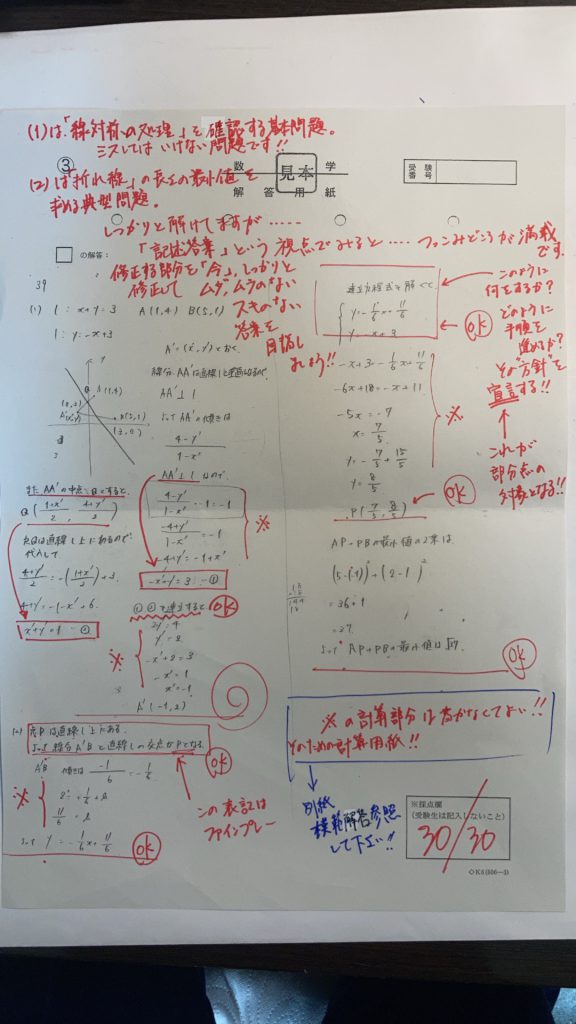 (1)は「線対称の処理」を確認する基本問題。
ミスしてはいけない問題です!!
③
数 学
見本
解答用紙
受験
番号
(2)は"折れ線"の長さの最小値を
求める典型問題。
しっかりと解けてますが……
「記述答案」という視点でみると……ツッコミどころが満載
です。
の解答:
修正する部分を「今」しっかりと
修正して ムダ、ムラのない
スキのない
答案を
目指し
ましょう!!
39
(1) l : x+y=3 A(1,4) B(5,1)
l : y=-x+3
A'=(x',y')とおく
線分AA'は直線lと垂直なので
AA'⊥l
よってAA'の傾きは
4-y'
1-x'
AA'⊥lなので
4-y'
1-x' ・-1=-1
-4+y'
1-x' =-1
-4+y'=-1+x'
-x'+y'=3 …①
※
また AA'の中点をQとすると
Q(1+x'/2, 4+y'/2)
点Qは直線l上にあるので
代入して
4+y'/2=-(1+x'/2)+3
4+y'=-1-x'+6
x'+y'=1…②
①②を連立すると
OK
2y'=4
y'=2
-x'+2=3
-x'=1
x'=-1
※
A'(-1,2)
(2) 点Pは直線l上にある。
よって線分A'Bと直線lの交点がPとなる
OK
A'B 傾きは -1/6 =-1/6
2=1/6+b
11/6=b
※
よって y=-1/6x+11/6
OK
この表記は
ファインプレー
連立方程式を解くと
y=-1/6x+11/6
y=-x+3
OK
このように
何をするか?
どのように
手順を
進めるか?
その"方針"を
宣言する!!
これが
部分点の
対象となる!!
-x+3=-1/6x+11/6
-6x+18=-x+11
-5x=-7
x=7/5
y=-7/5+15/5
y=8/5
※
P(7/5, 8/5)
OK
AP+PBの最小値の2乗は
(5-(-1))²+(2-1)²
=36+1
=37
よって AP+PBの最小値は√37
OK
※の計算部分は書かなくてよい!!
そのための計算用紙!!
別紙
模範解答参照
して下さい!!
※採点欄
(受験生は記入しないこと)
30/30